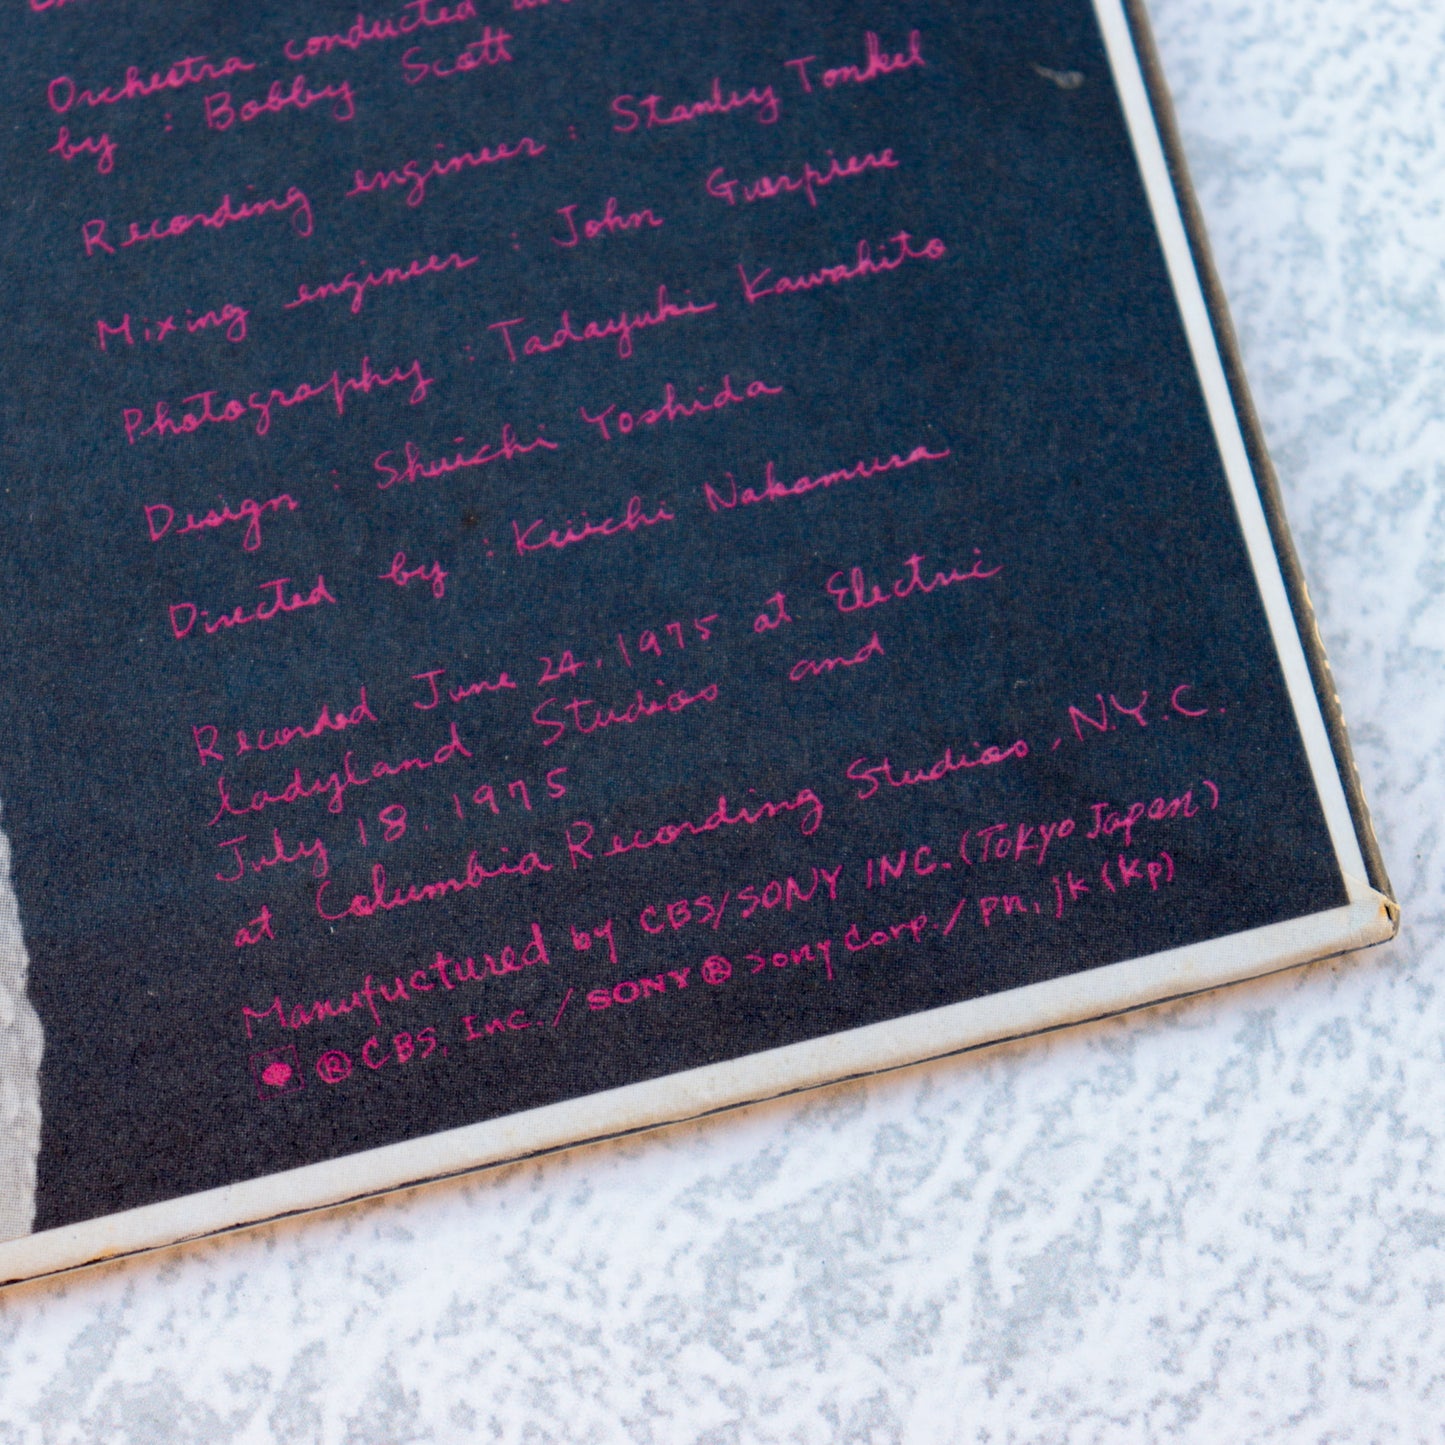 Orchestra conducted
by : Bobby Scott
Recording engineer : Stanley Tonkel
Mixing engineer : John Guerpiere
Photography : Tadayuki Kawahito
Design : Shuichi Yoshida
Directed by : Keiichi Nakamura
Recorded June 24, 1975 at Electric
Ladyland Studios and
July 18, 1975
at Columbia Recording Studios, N.Y.C.
Manufuctured by CBS/SONY INC. (Tokyo Japan)
® CBS, Inc. / SONY ® Sony Corp. / Pn, jk (Kp)